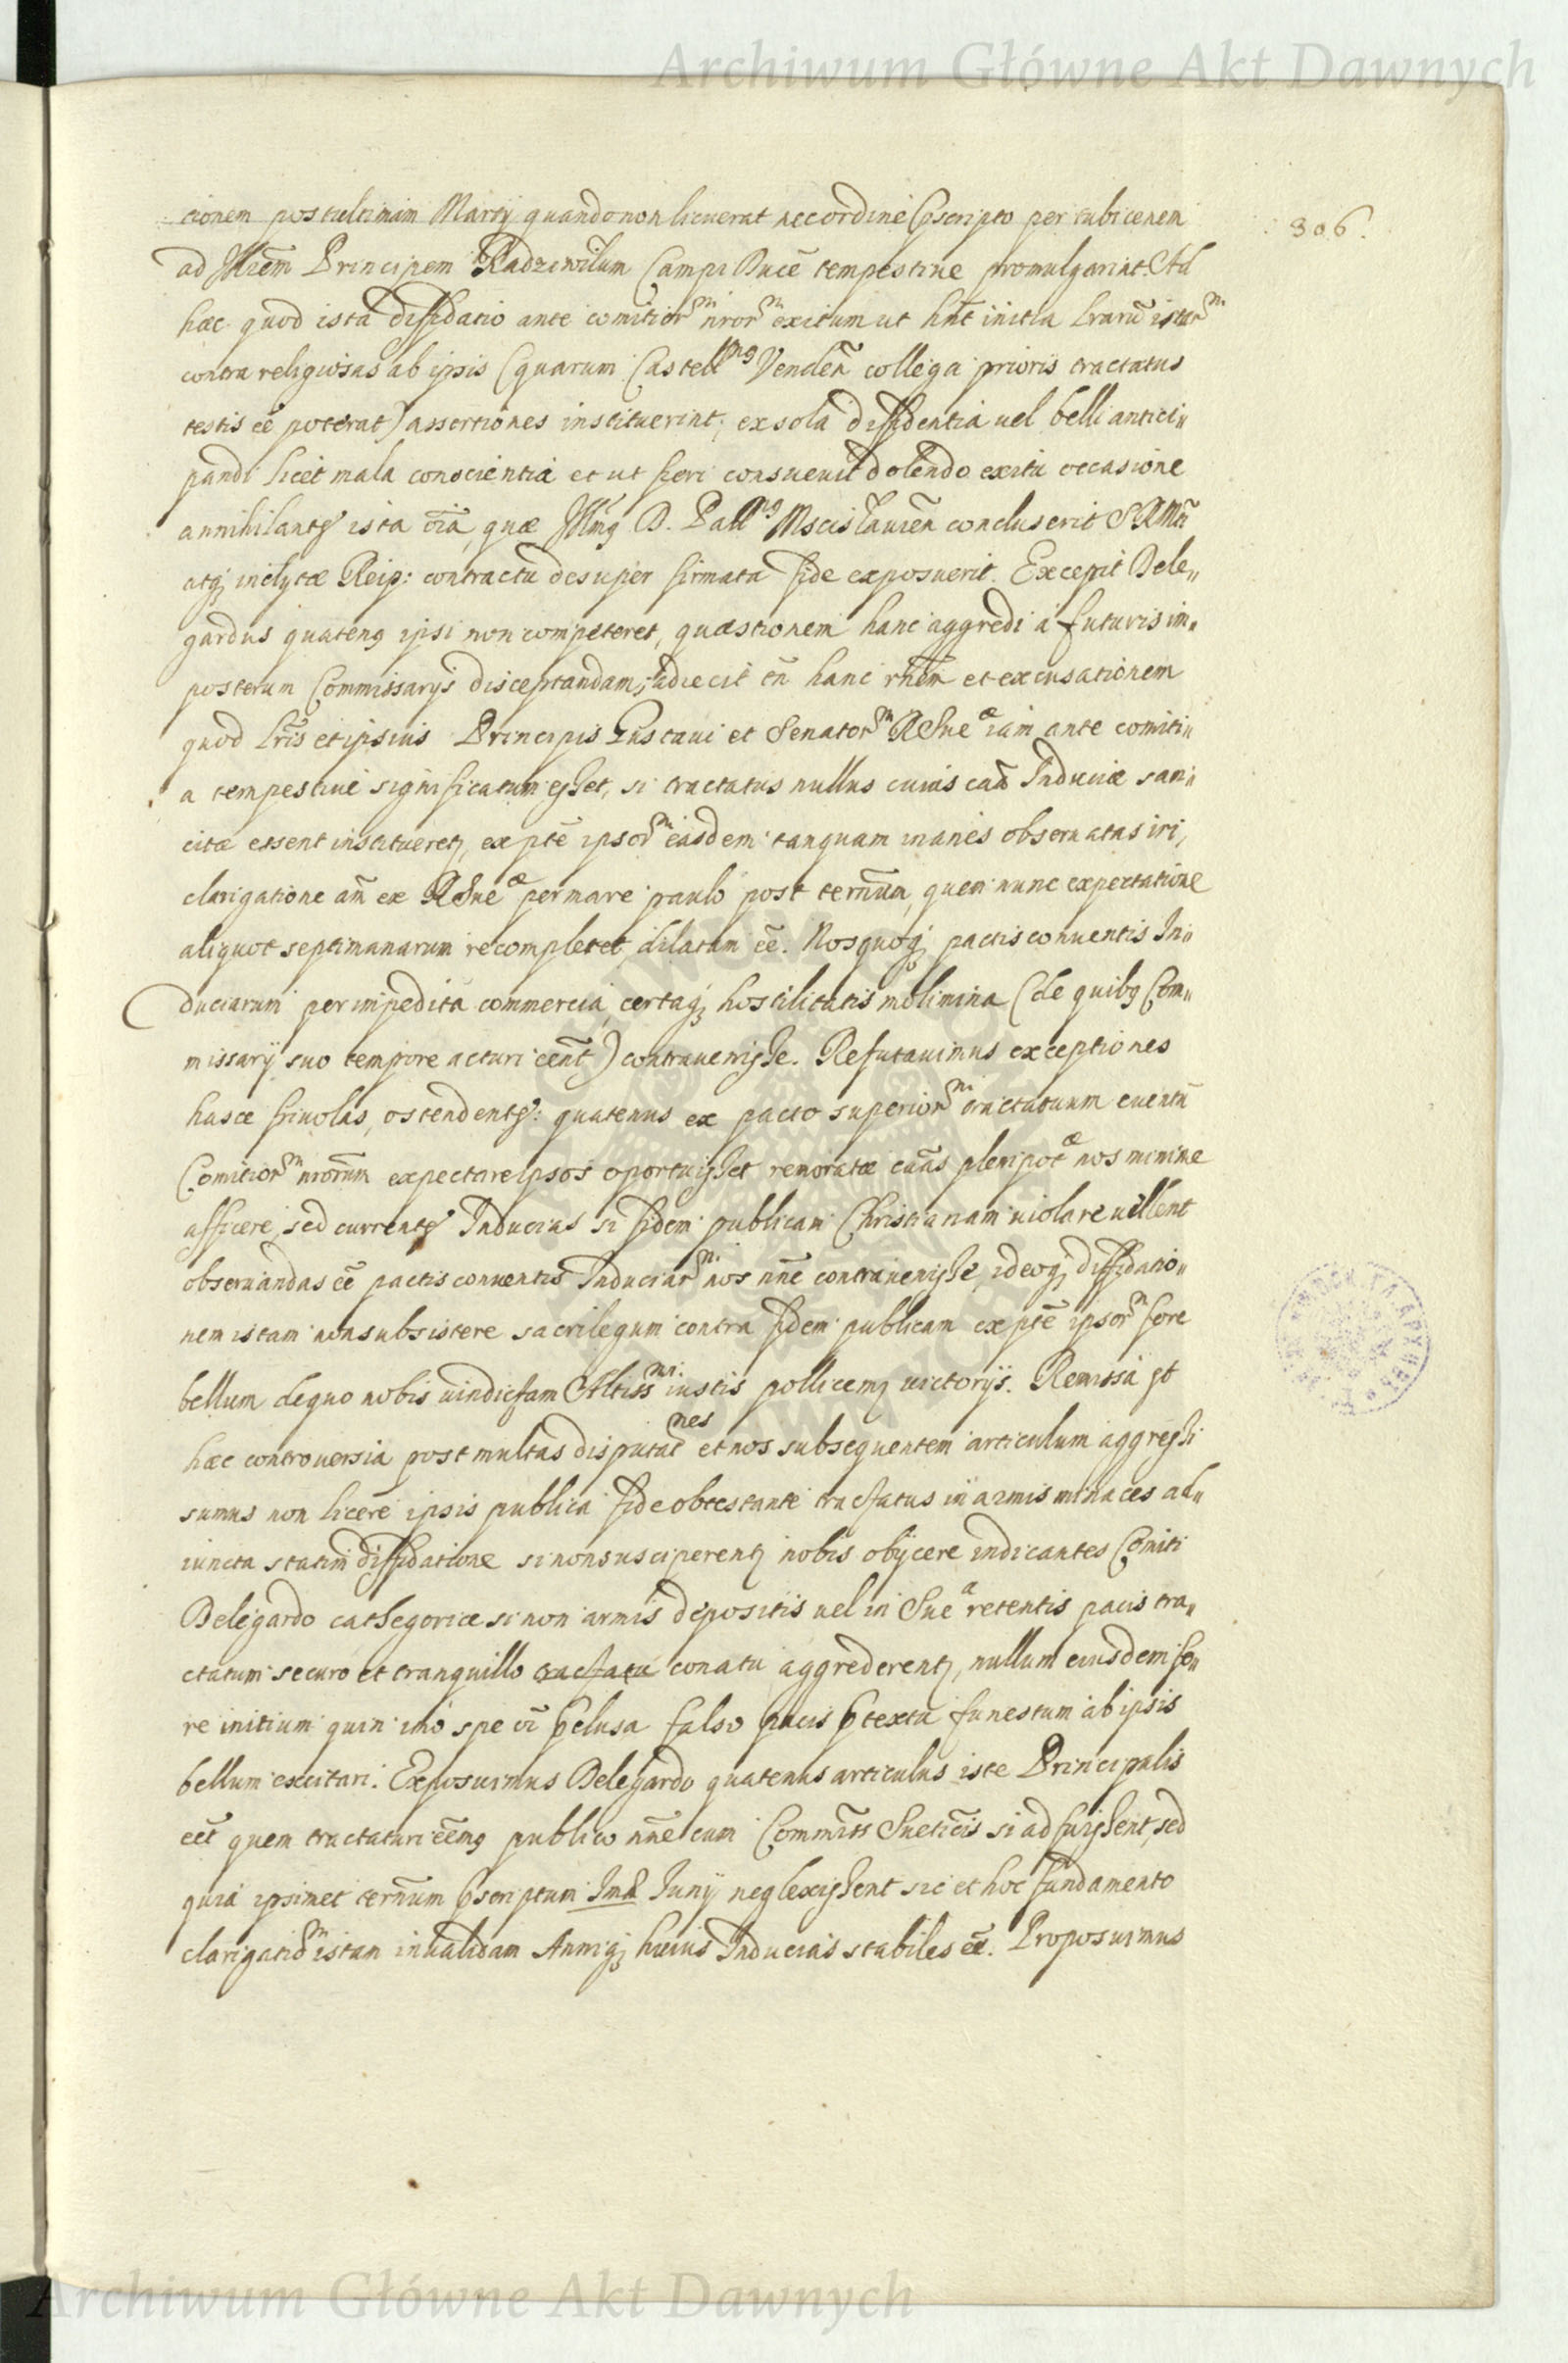 Archiwum Główne Akt Dawnych
306.
tionem postultimam Martij quando non licuerat nec ordine pscripto per tubicenem
ad Illrem Principem Radziwilum Campi Ducē tempestive promulgarint. Ad
hæc quod ista diffidatio ante comitiorm nrorm exitum ut hnt initia lrarū istarm
contra religiosas ab ipsis (quarum Castellng Venden̄ collega prioris tractatus
testis eē poterat) assertiones instituerint, ex sola diffidentia vel belli antici„
pandi licet mala conscientia et ut fieri consuevit dolendo exitu occasione
annihilantes ista oīa, quæ Illmg D. Pallng Mscislavien̄ concluserit SRMti
atq; inclytæ Reip: contractu desuper firmata fide exposuerit. Excepit Dele„
gardus quateng ipsi non competeret, quæstionem hanc aggredi a futuris im„
posterum Commissarijs disceptandam, adiecit tn̄ hanc rn̄em et excusationem
quod lr̄is et ipsius Principis Gustavi et Senatorm RSueæ iam ante comiti„
a tempestive significatum esset, si tractatus nullus cuius caā Induciæ san„
citæ essent institueretr, ex pte ipsorm easdem tanquam inanes observatas iri,
clarigatione am̄ ex RSueæ per mare paulo post termnum, quem nunc expectatione
aliquot septimanarum recompletet, dilatam eē. Nos quoq; pactis conventis In„
duciarum per impedita commercia, certaq; hostilitatis molimina (de quibg Com„
missarij suo tempore acturi eēnt) contravenisse. Refutavimus exceptiones
hasce frivolas, ostendentes: quatenus ex pacto superiorm tractatuum eventū
Comitiorm nrorum expectare ipsos oportuisset remoratæ caās plenipotæ nos minime
afficere, sed currentes Inducias si fidem publicam Christianam violare nollent
observandas eē pactis conventis Induciarm nos nn̄e contravenisse, ideoq; diffidatio„
nem istam non subsistere sacrilegum contra fidem publicam ex pte ipsorm fore
bellum de quo nobis vindictam Altissmi iustis pollicemr victorijs. Remissa est
hæc controversia post multas disputatnes et nos subsequentem articulum aggressi
sumus non licere ipsis publica fide obtestante tractatus in armis minaces ad„
iuncta statim diffidatione si non susciperentr nobis obijcere indicantes Comiti
Delegardo cathegorice si non armis depositis vel in Suea retentis pacis tra„
ctatum securo et tranquillo tractatu conatu aggrederentr, nullum eiusdem fo„
re initium quin imo spe oī pelusa falso pacis ptextu funestum ab ipsis
bellum excitari. Exposuimus Delegardo quatenus articulus iste Principalis
eēt quem tractaturi eēmg publico nn̄e cum Commīss Sueticis si adfuissent, sed
quia ipsimet termnum pscriptum Imā Junij neglexissent sic et hoc fundamento
clarigatiom istam invalidam Anniq; huius Inducias stabiles eē. Proposuimus
Archiwum Główne Akt Dawnych